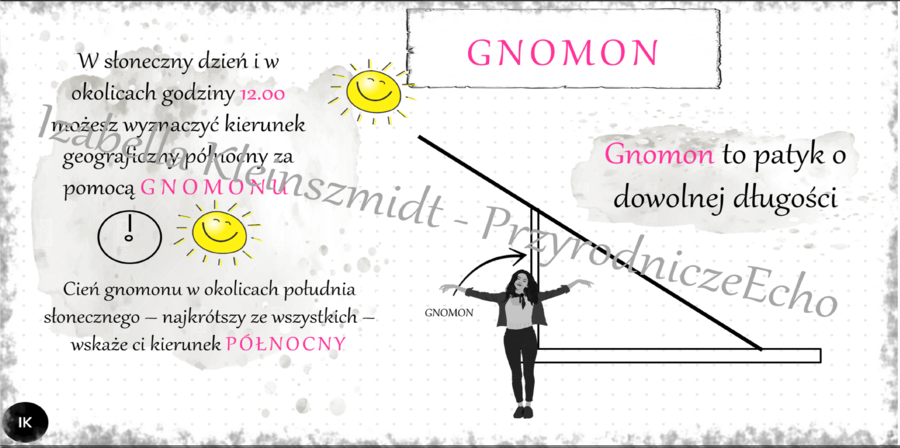 GNOMON
W słoneczny dzień i w
okolicach godziny 12.00
możesz wyznaczyć kierunek
geograficzny północny za
pomocą GNOMONU
Gnomon to patyk o
dowolnej długości
Izabella Kleinszmidt - PrzyrodniczeEcho
GNOMON
Cień gnomonu w okolicach południa
słonecznego – najkrótszy ze wszystkich –
wskaże ci kierunek PÓŁNOCNY
IK